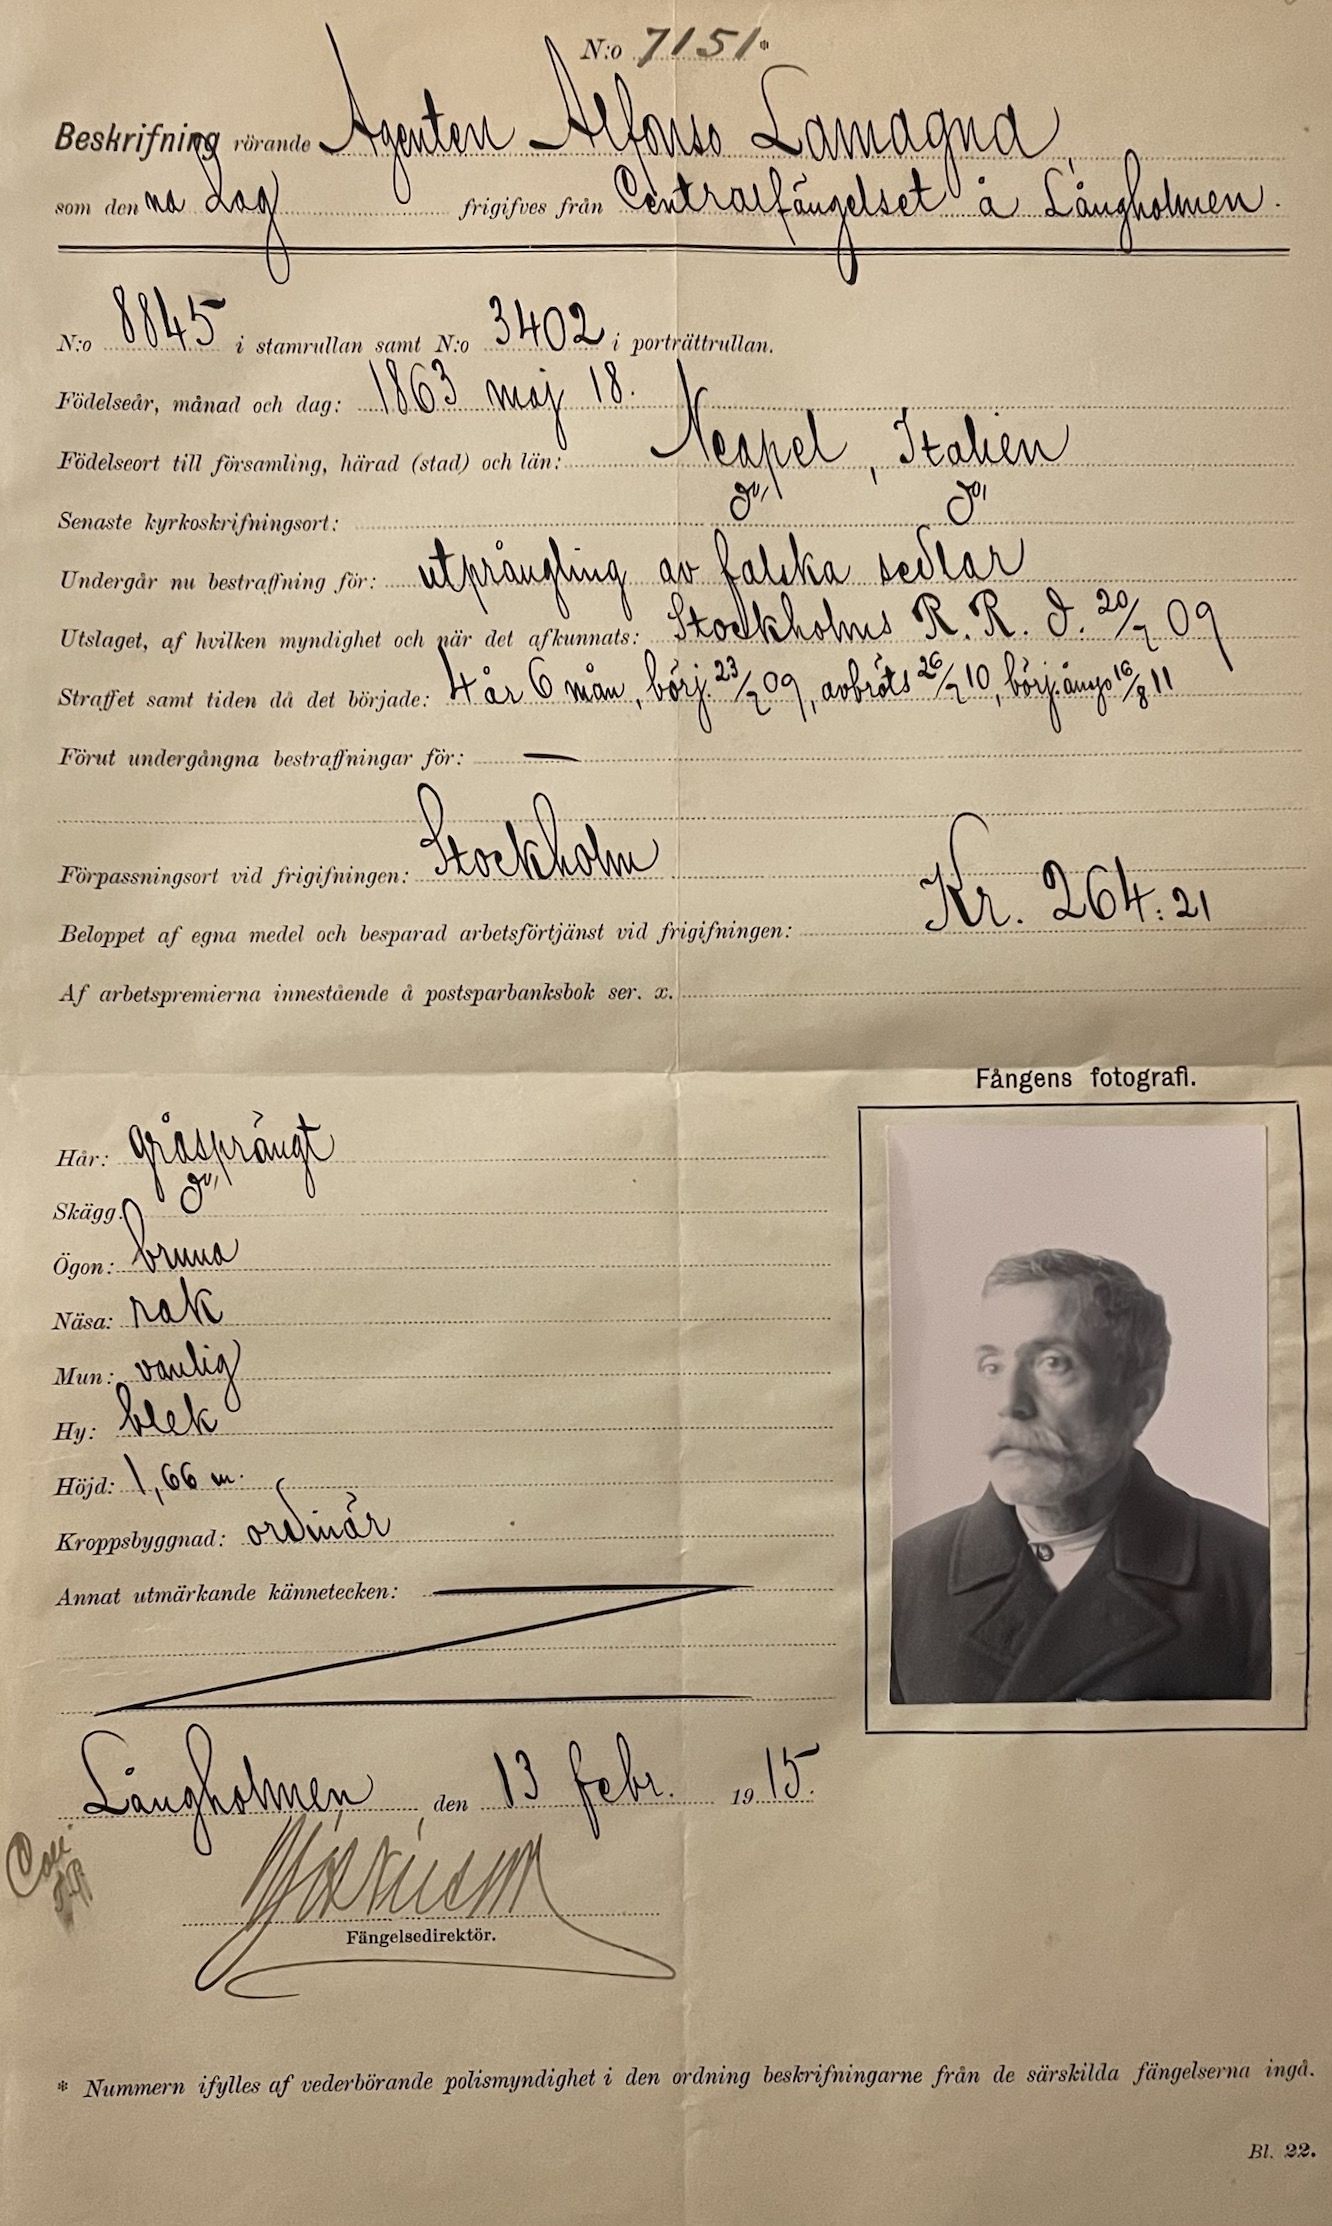 N:o 7151*
Beskrifning rörande Agenten Alfonso Lamagna,
som den na dag frigifves från Centralfängelset å Långholmen.
N:o 8845 i stamrullan samt N:o 3402 i porträttrullan.
Födelseår, månad och dag: 1863 maj 18.
Födelseort till församling, härad (stad) och län: Neapel, Italien
Senaste kyrkoskrifningsort: do, do,
Undergår nu bestraffning för: utprångling av falska sedlar
Utslaget, af hvilken myndighet och när det afkunnats: Stockholms R. R. d. 20/7 09
Straffet samt tiden då det började: 4 år 6 mån, börj. 23/7 09, avbröts 26/7 10, börj. ånyo 16/8 11
Förut undergångna bestraffningar för: —
Förpassningsort vid frigifningen: Stockholm
Beloppet af egna medel och besparad arbetsförtjänst vid frigifningen: Kr. 264:21
Af arbetspremierna innestående å postsparbanksbok ser. x.
Fångens fotografi.
Hår: gråsprängt
Skägg: do,
Ögon: bruna
Näsa: rak
Mun: vanlig
Hy: blek
Höjd: 1,66 m.
Kroppsbyggnad: ordinär
Annat utmärkande kännetecken:
Långholmen den 13 febr. 1915.
Fängelsedirektör.
* Nummern ifylles af vederbörande polismyndighet i den ordning beskrifningarne från de särskilda fängelserna ingå.
Bl. 22.